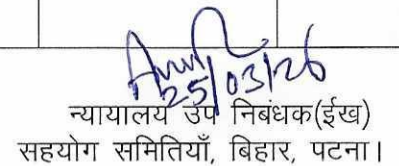 25/03/26
न्यायालय उप निबंधक(ईख)
सहयोग समितियाँ, बिहार, पटना।